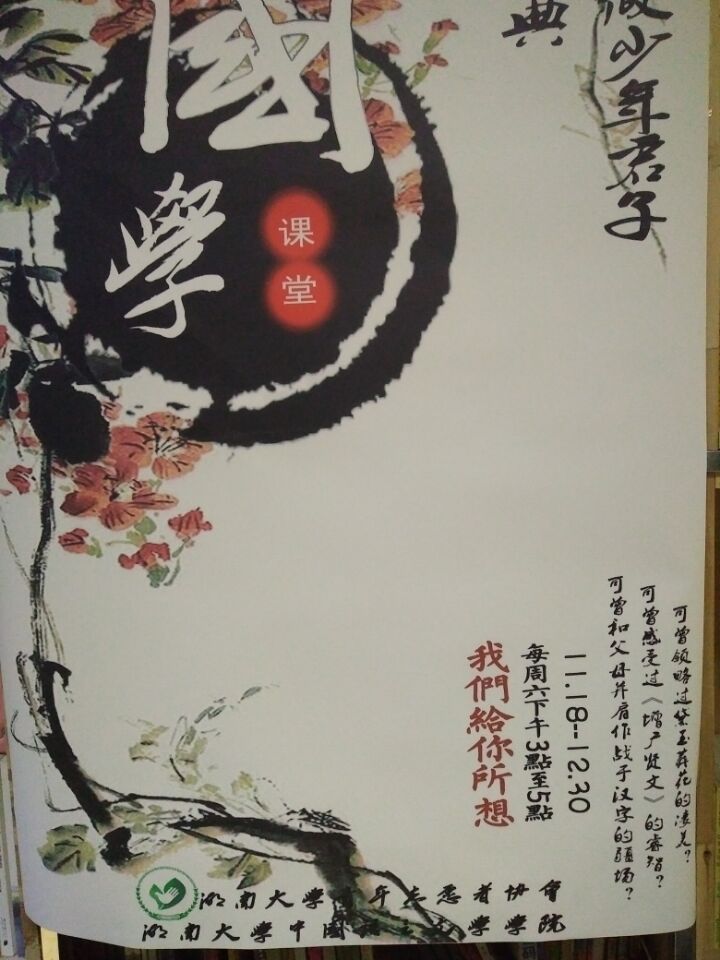 做少年君子
典
國學
课堂
可曾领略过黛玉葬花的凄美?
可曾感受过《增广贤文》的睿智?
可曾和父母并肩作战于汉字的疆场?
11.18--12.30
每周六下午3點至5點
我們給你所想
湖南大學青年志愿者协會
湖南大學中國語言文學學院